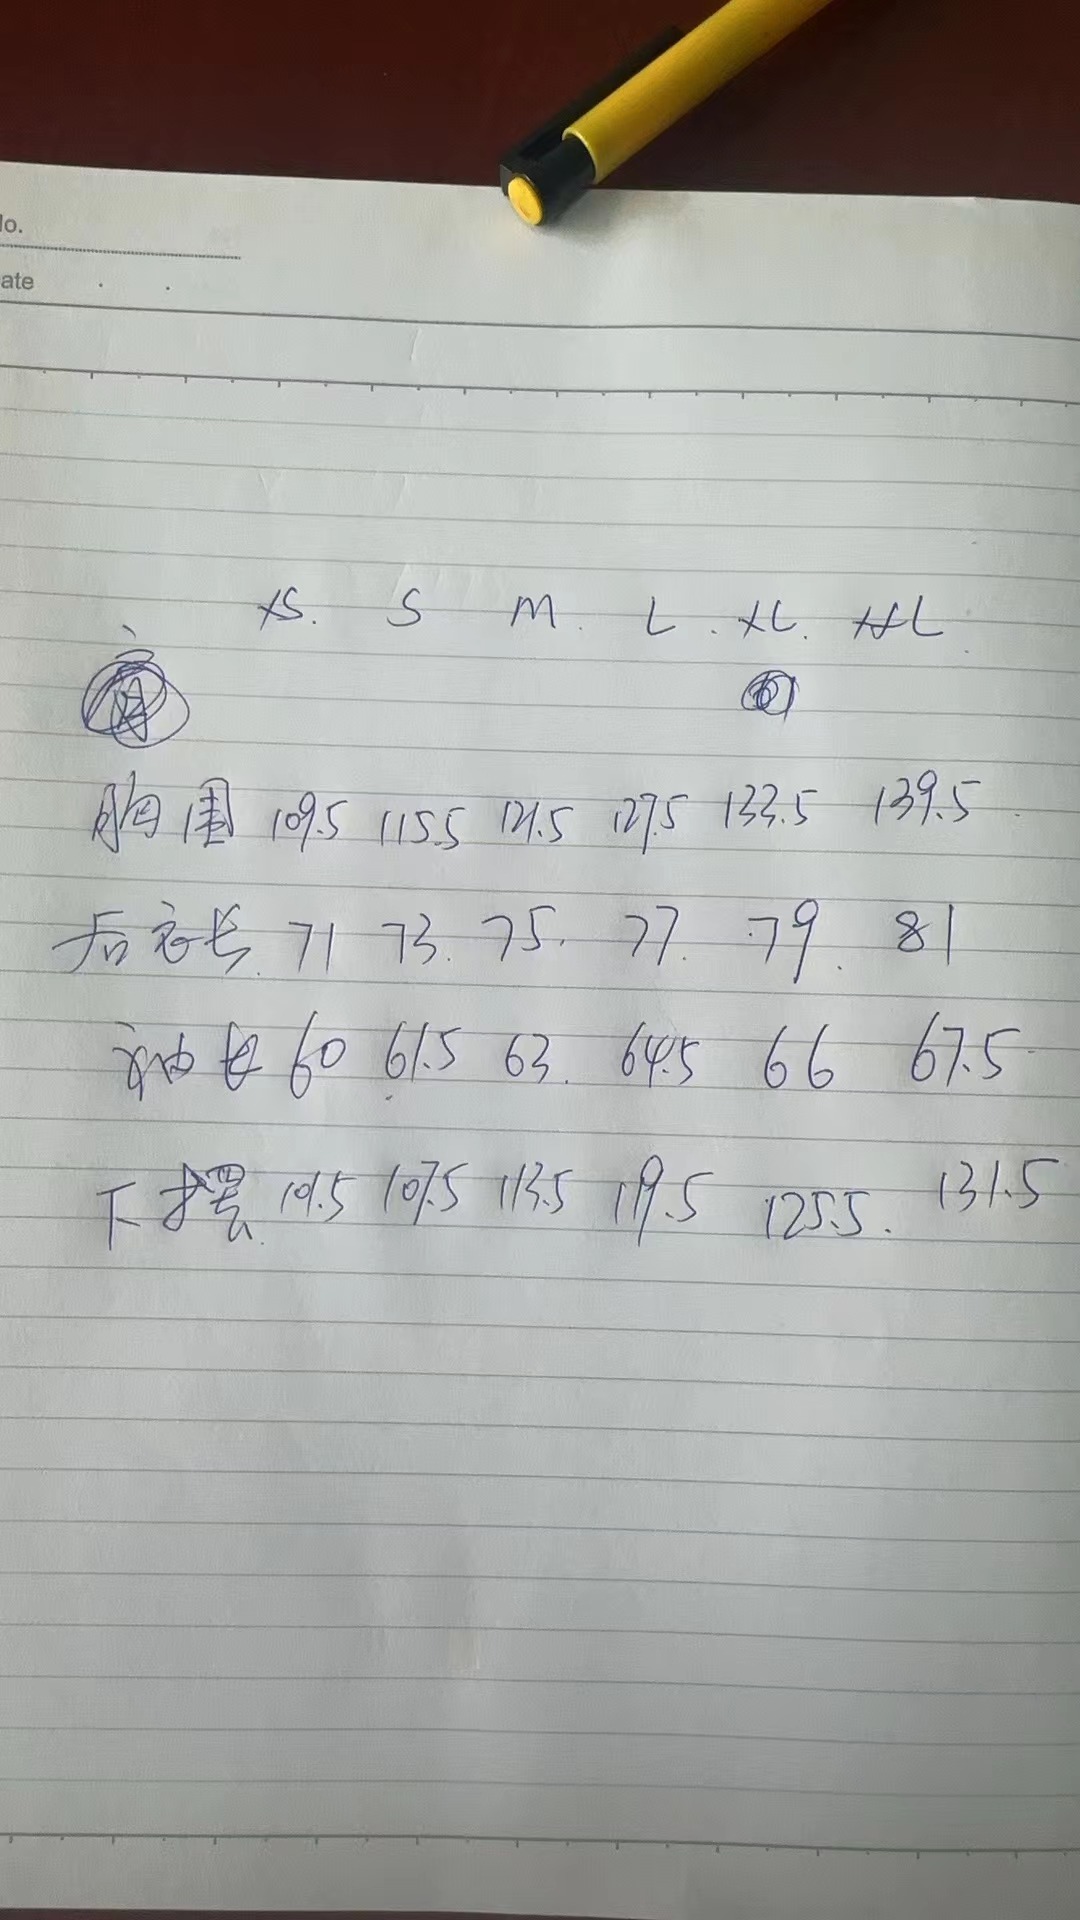 No.
ate
XS. S M. L. XL. XXL.
胸围 109.5 115.5 121.5 127.5 133.5 139.5
后衣长 71 73. 75. 77. 79. 81
袖长 60 61.5 63. 64.5 66 67.5
下摆 101.5 107.5 113.5 119.5 125.5. 131.5